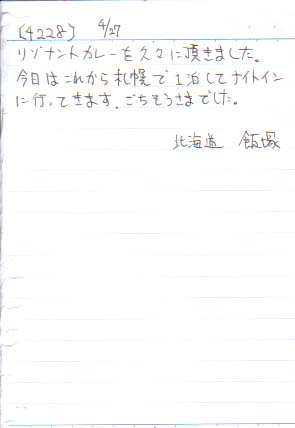 [4228] 4/27
リゾナントカレーを久々に頂きました。
今日はこれから札幌で1泊してナイトイン
に行ってきます。ごちそうさまでした。
北海道 飯塚